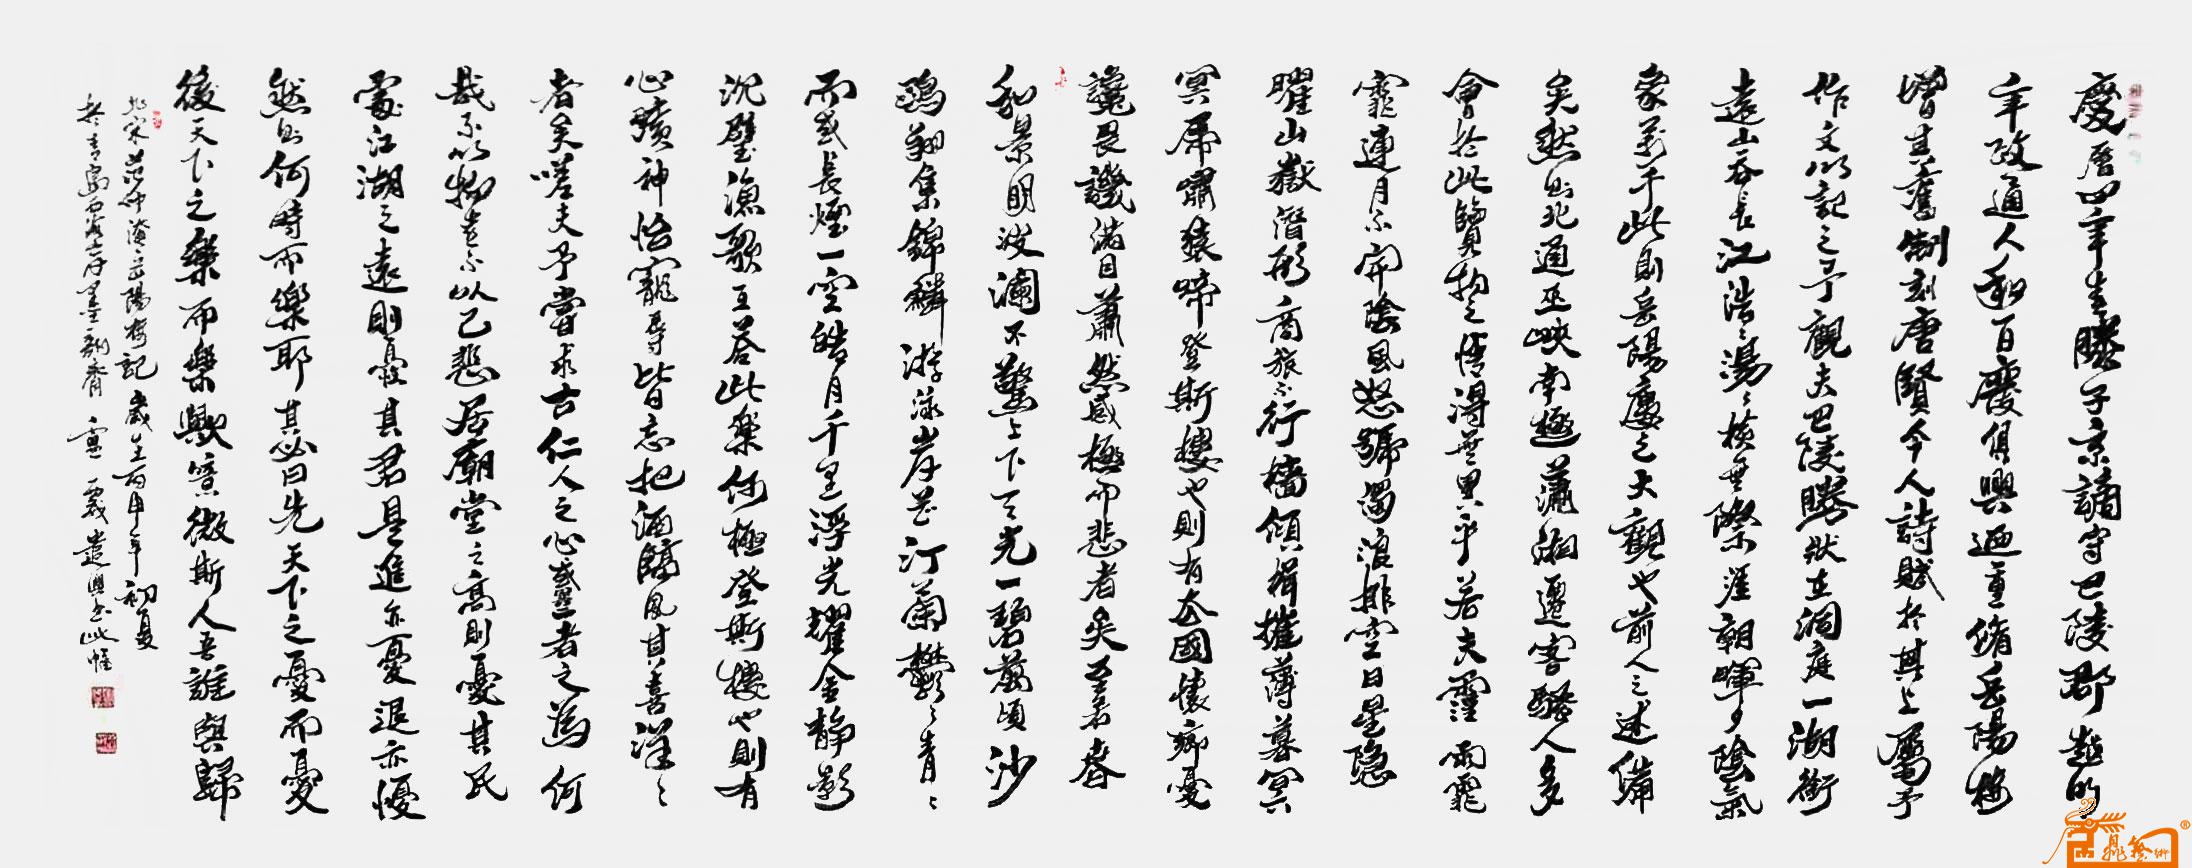 慶曆四年春滕子京謫守巴陵郡越明
年政通人和百廢俱興迺重脩岳陽樓
增其舊制刻唐賢今人詩賦於其上屬予
作文以記之予觀夫巴陵勝狀在洞庭一湖銜
遠山吞長江浩〻湯〻橫無際涯朝暉夕陰氣
象萬千此則岳陽樓之大觀也前人之述備
矣然則北通巫峽南極瀟湘遷客騷人多
會於此覽物之情得無異乎若夫霪雨霏
霏連月不開陰風怒號濁浪排空日星隱
曜山嶽潛形商旅不行檣傾楫摧薄暮冥
冥虎嘯猿啼登斯樓也則有去國懷鄉憂
讒畏譏滿目蕭然感極而悲者矣至若春
和景明波瀾不驚上下天光一碧萬頃沙
鷗翔集錦鱗游泳岸芷汀蘭鬱〻青〻
而或長煙一空皓月千里浮光耀金靜影
沉璧漁歌互答此樂何極登斯樓也則有
心曠神怡寵辱皆忘把酒臨風其喜洋〻
者矣嗟夫予嘗求古仁人之心或異二者之為何
哉不以物喜不以己悲居廟堂之高則憂其民
處江湖之遠則憂其君是進亦憂退亦憂
然則何時而樂耶其必曰先天下之憂而憂
後天下之樂而樂歟噫微斯人吾誰與歸
北宋范仲淹岳陽樓記歲在丙申年初夏
於青島石老人墨韻齋